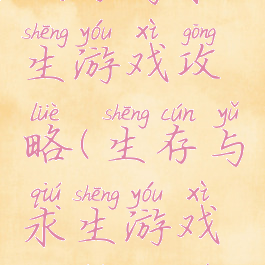 shēng yóu xì gōng
生游戏攻
lüè shēng cún yǔ
略(生存与
qiú shēng yóu xì
求生游戏